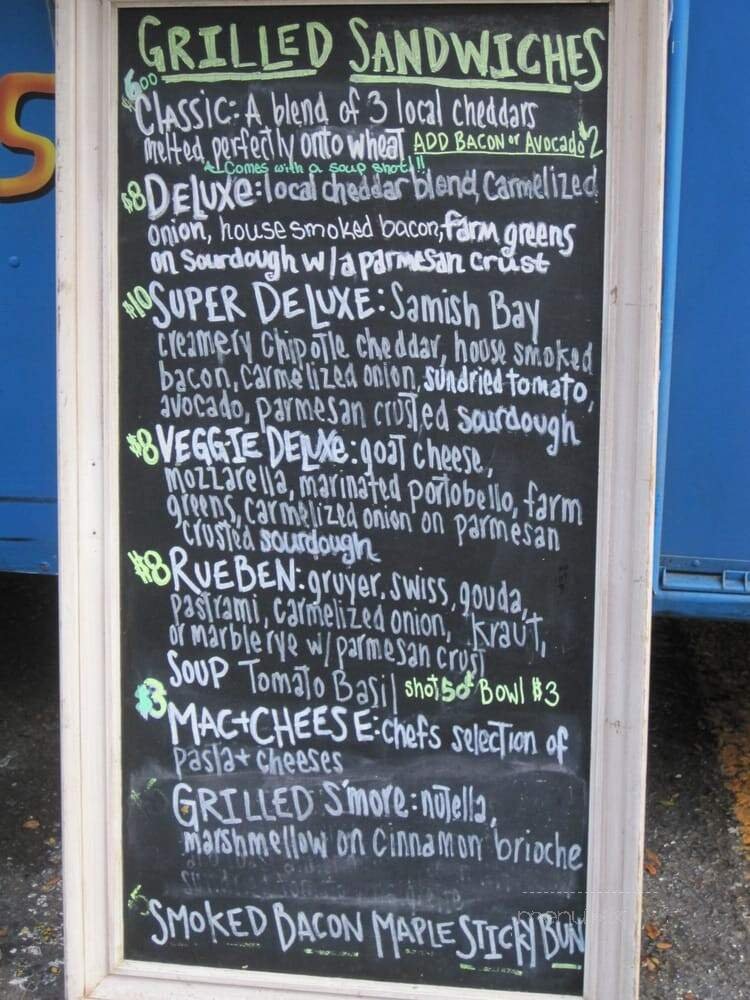 GRILLED SANDWICHES
$6.00
CLASSIC: A blend of 3 local cheddars
melted perfectly onto wheat ADD BACON or Avocado $2
Comes with a soup shot!!
$8 DELUXE: local cheddar blend, Carmelized
onion, house smoked bacon, farm greens
on Sourdough w/a parmesan crust
$10 SUPER DELUXE: Samish Bay
creamery Chipotle cheddar, house smoked
bacon, carmelized onion, sundried tomato,
avocado, parmesan crusted sourdough
$8 VEGGIE DELUXE: goat cheese,
mozzarella, marinated portobello, farm
greens, carmelized onion on parmesan
crusted sourdough
$8 RUEBEN: gruyer, swiss, gouda,
pastrami, carmelized onion, kraut,
or marble rye w/ parmesan crust
SOUP Tomato Basil shot 50¢ Bowl $3
$3
MAC+CHEESE: chefs selection of
pasta + cheeses
GRILLED S'more: nutella,
marshmellow on Cinnamon brioche
$5
SMOKED BACON MAPLE STICKY BUN
S